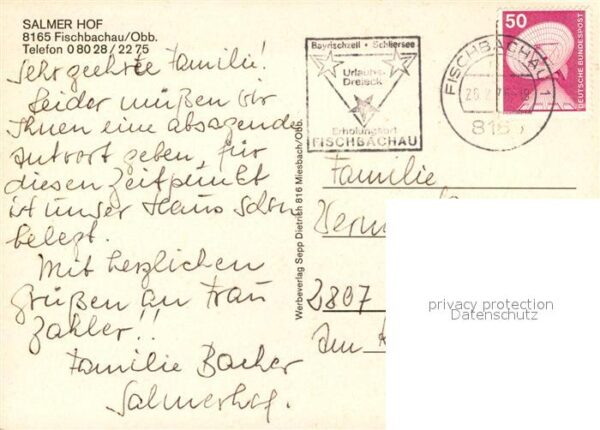 SALMER HOF
8165 Fischbachau/Obb.
Telefon 0 80 28 / 22 75
Sehr geehrte Familie!
Leider müßen wir
Ihnen eine absagende
Antwort geben, für
diesen Zeitpunkt
ist unser Haus schon
belegt.
Mit herzlichen
Grüßen an Frau
Zahler!!
Familie Bacher
Salmerhof.
Werbeverlag Sepp Dietrich 816 Miesbach/Obb.
Bayrischzell · Schliersee
Urlaubs-
Dreieck
Erholungsort
FISCHBACHAU
FISCHBACHAU 1
50
DEUTSCHE BUNDESPOST
Familie
2807
privacy protection
Datenschutz